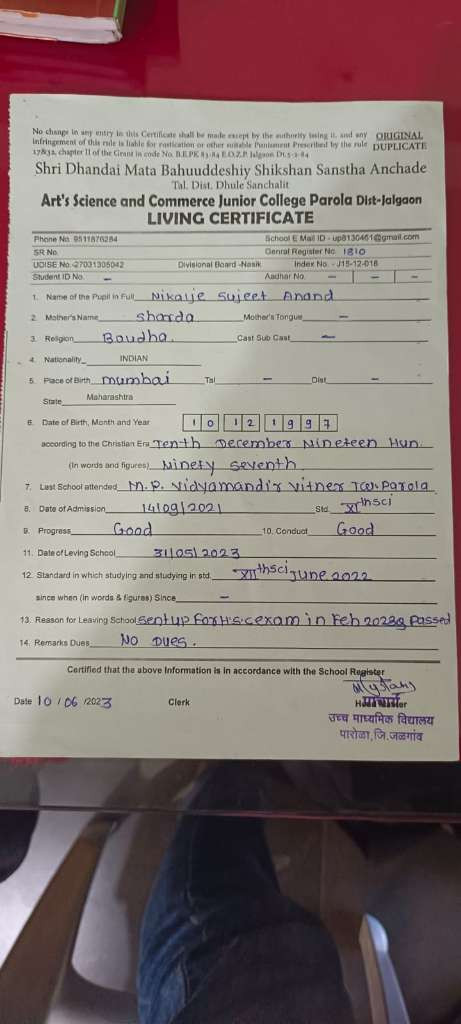 No change in any entry in this Certificate shall be made except by the authority ising it. and any ORIGINAL
infringement of this rule is liable for rustication or other suitable Punisment Prescribed by the rule DUPLICATE
17&32, chapter II of the Grant in code No. B.E.PK 83-84 E.O.Z.P. Jalgaon Dt.5-2-84
Shri Dhandai Mata Bahuuddeshiy Shikshan Sanstha Anchade
Tal. Dist. Dhule Sanchalit
Art's Science and Commerce Junior College Parola Dist-Jalgaon
LIVING CERTIFICATE
Phone No. 9511876284 School E Mail ID - up8130461@gmail.com
SR No. Genral Register No. 1810
UDISE No.-27031305042 Divisional Board -Nasik Index No. - J15-12-016
Student ID No. - Aadhar No. - - -
1. Name of the Pupil in Full Nikalje Sujeet Anand
2. Mother's Name sharda Mother's Tongue -
3. Religion Baudha. Cast Sub Cast -
4. Nationality INDIAN
5. Place of Birth mumbai Tal - Dist -
State Maharashtra
6. Date of Birth, Month and Year 1 0 1 2 1 9 9 7
according to the Christian Era Tenth December Nineteen Hun.
(In words and figures) Ninety seventh
7. Last School attended M.P. Vidyamandir Vitner Tal. Parola
8. Date of Admission 14/09/2021 Std. XIth sci
9. Progress Good 10. Conduct Good
11. Date of Leving School 31/05/2023
12. Standard in which studying and studying in std. XIIth sci june 2022
since when (in words & figures) Since -
13. Reason for Leaving School sent up For H.s.c exam in Feb 2023 & Passed
14. Remarks Dues NO Dues.
Certified that the above Information is in accordance with the School Register
Date 10 / 06 /2023 Clerk Head Master
प्राचार्य
उच्च माध्यमिक विद्यालय
पारोळा, जि.जळगांव